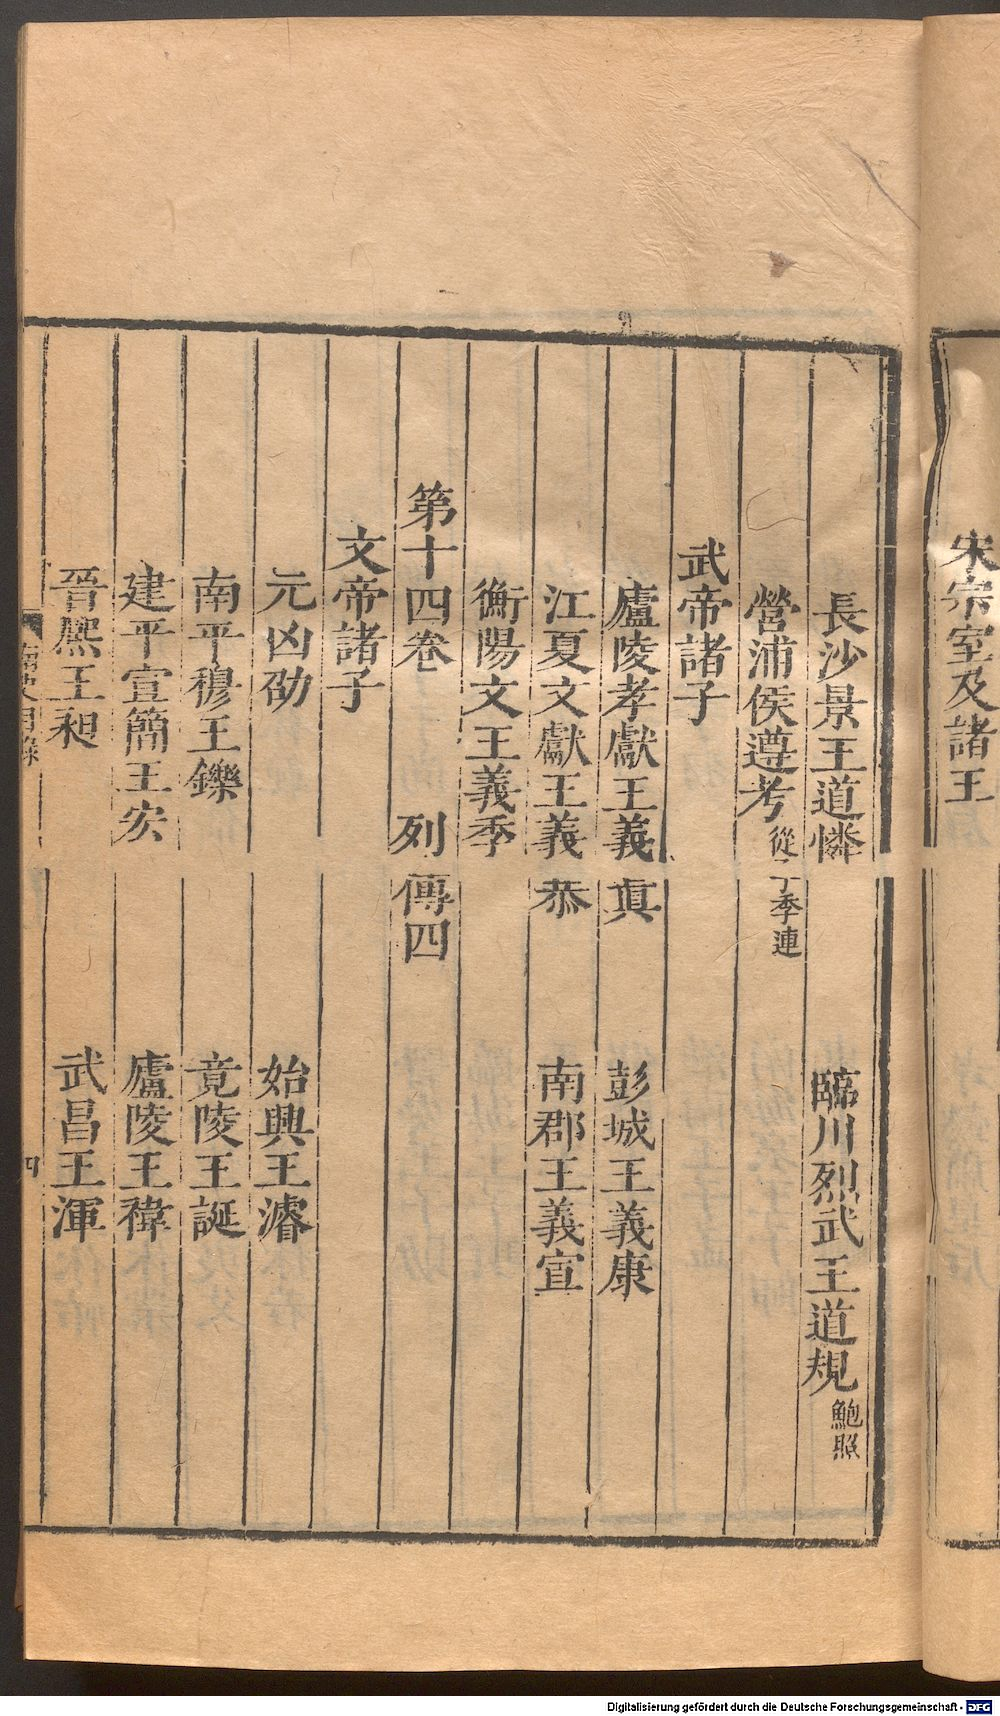 宋宗室及諸王
長沙景王道憐　臨川烈武王道規 鮑照
營浦侯遵考 從子季連
武帝諸子
廬陵孝獻王義真　彭城王義康
江夏文獻王義恭　南郡王義宣
衡陽文王義季
第十四卷　列傳四
文帝諸子
元凶劭　始興王濬
南平穆王鑠　竟陵王誕
建平宣簡王宏　廬陵王禕
晉熈王昶　武昌王渾
南史目錄　四
Digitalisierung gefördert durch die Deutsche Forschungsgemeinschaft - DFG